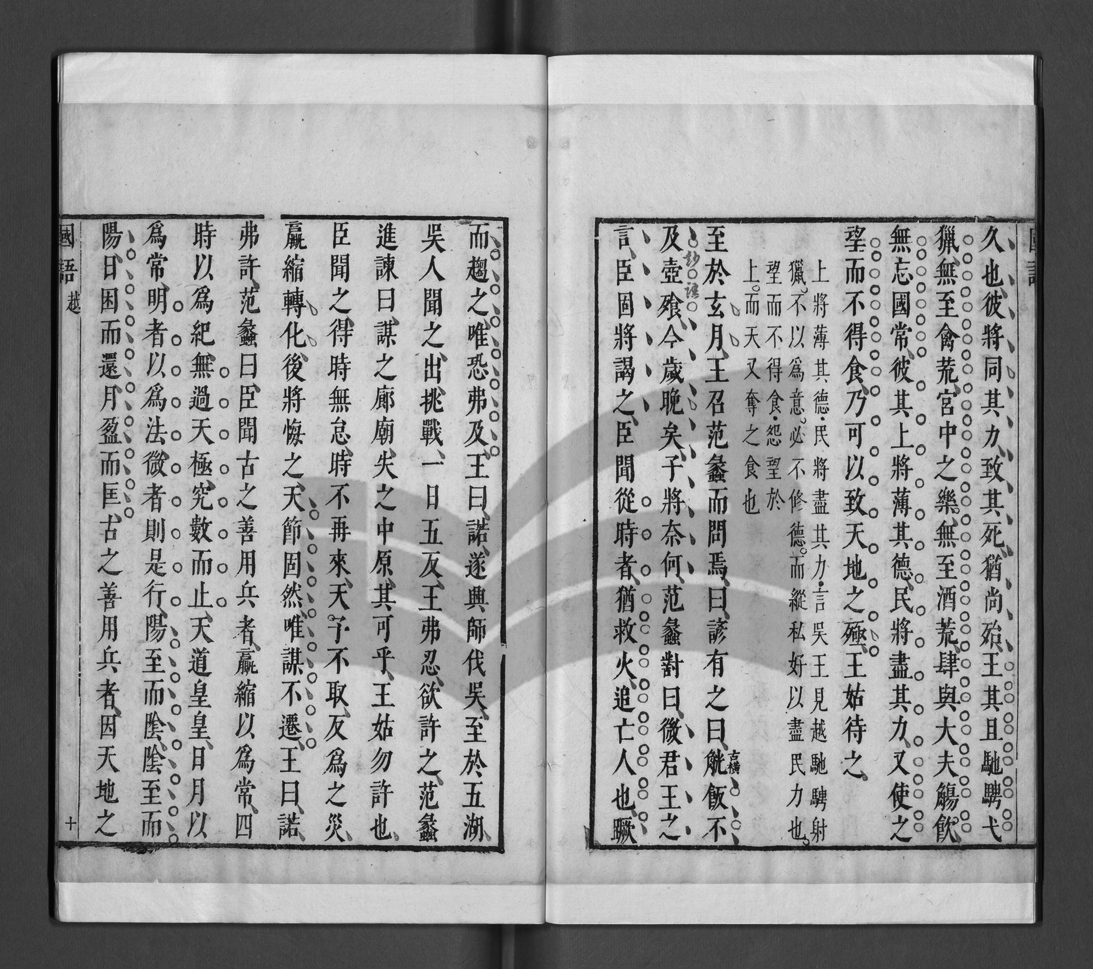 國語
久也彼將同其力致其死猶尚殆王其且馳騁弋
獵無至禽荒宮中之樂無至酒荒肆與大夫觴飲
無忘國常彼其上將薄其德民將盡其力又使之
望而不得食乃可以致天地之殛王姑待之
上將薄其德民將盡其力言吳王見越馳騁射
獵不以爲意必不修德而縱私好以盡民力也
望而不得食怨望於
上而天又奪之食也
至於玄月王召范蠡而問焉曰諺有之曰觥飯不
古橫
及壺飧今歲晚矣子將奈何范蠡對曰微君王之
妙語
言臣固將謁之臣聞從時者猶救火追亡人也蹶
而趨之唯恐弗及王曰諾遂興師伐吳至於五湖
吳人聞之出挑戰一日五反王弗忍欲許之范蠡
進諫曰謀之廊廟失之中原其可乎王姑勿許也
臣聞之得時無怠時不再來天予不取反爲之災
贏縮轉化後將悔之天節固然唯謀不遷王曰諾
弗許范蠡曰臣聞古之善用兵者贏縮以爲常四
時以爲紀無過天極究數而止天道皇皇日月以
爲常明者以爲法微者則是行陽至而陰陰至而
陽日困而還月盈而匡古之善用兵者因天地之
國語
越
十